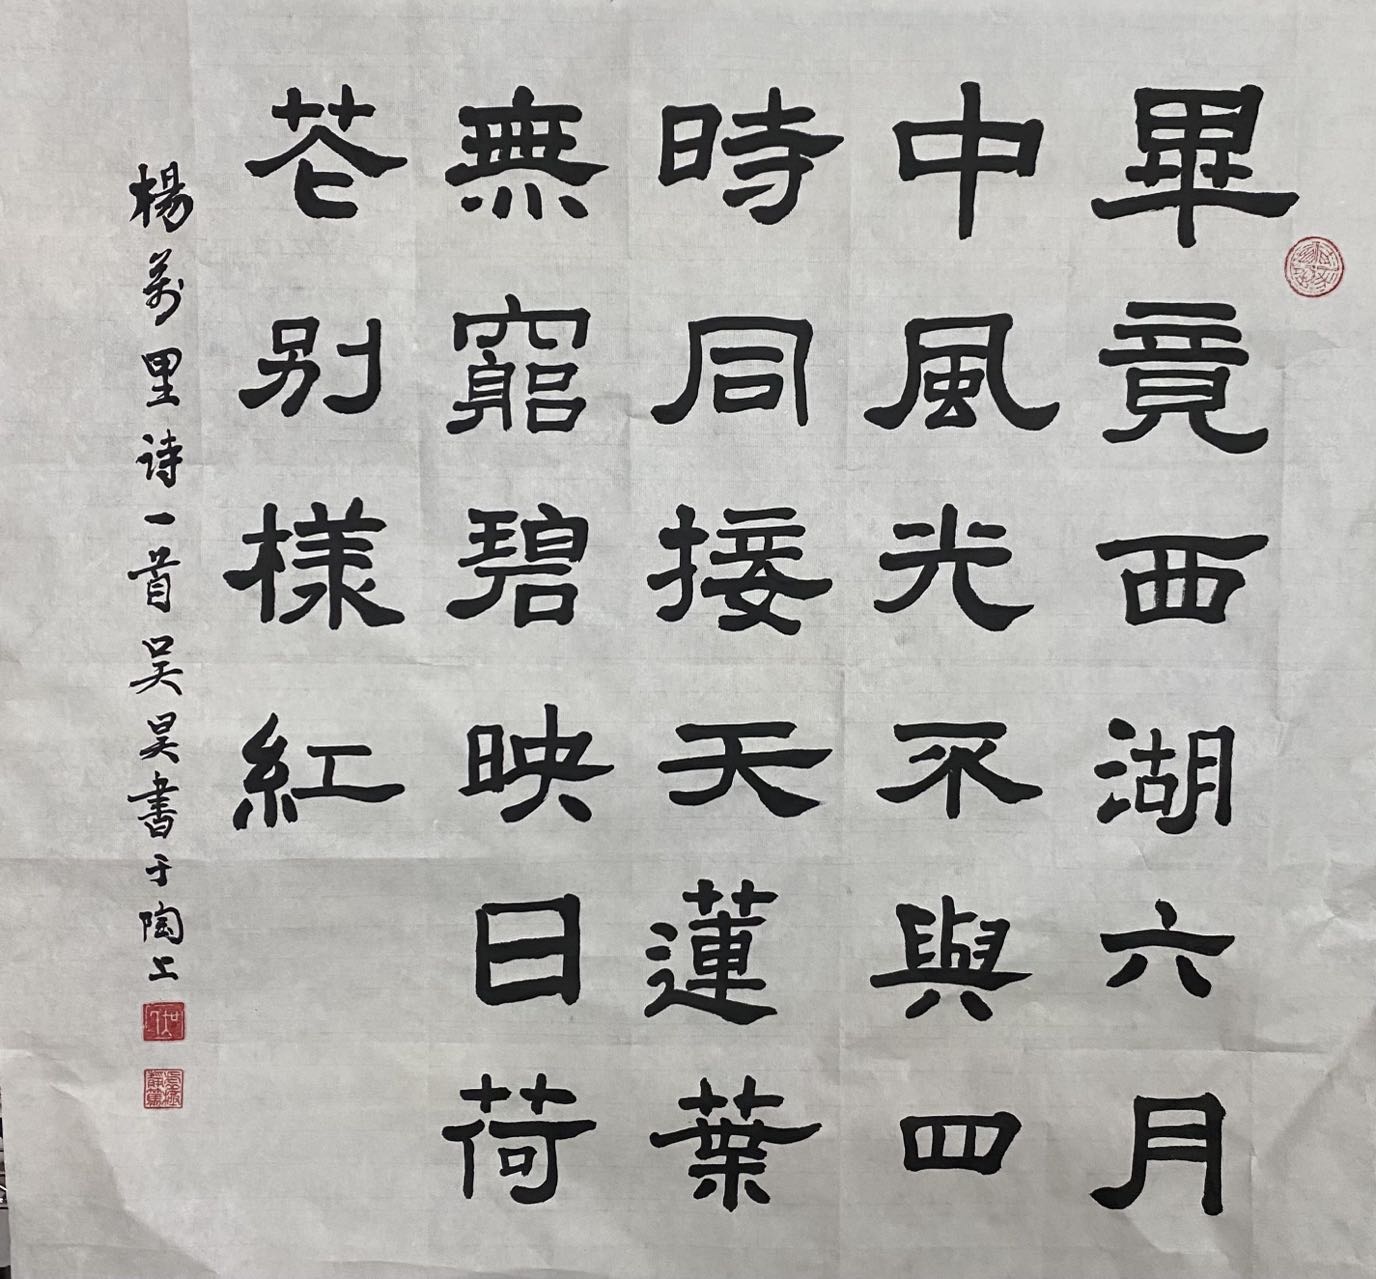 畢竟西湖六月
中風光不與四
時同接天蓮葉
無窮碧映日荷
花別樣紅
楊萬里诗一首吴昊書于陶上